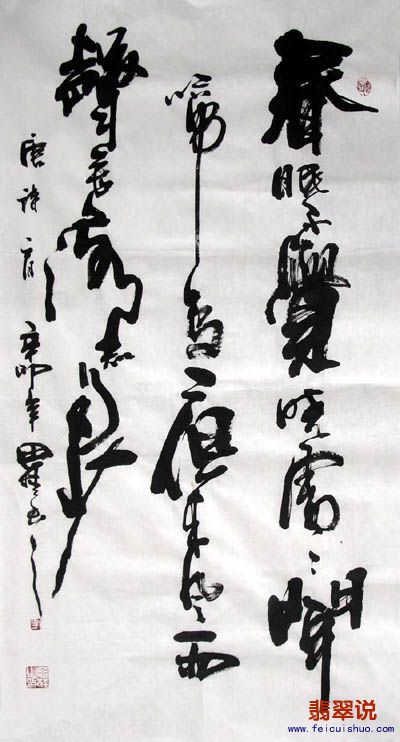 春眠不覺曉處〻聞
啼鳥夜来风雨
聲花落知多少
唐詩一首辛卯年
翡翠说
www.feicuishuo.com